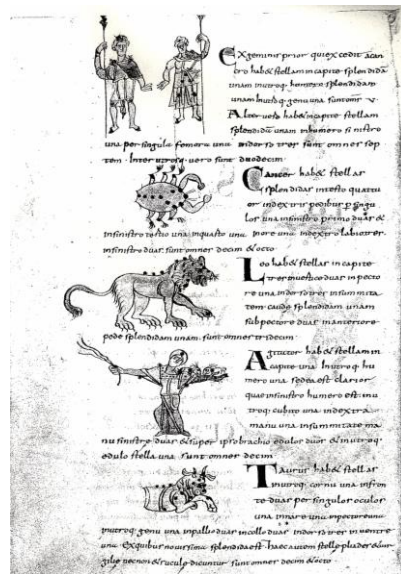 Ex geminis prior qui excedit a can
cro hab& stellam in capite splendidā
unam in utroq· humero splendidam
unam
Alter uero hab& in capite stellam
splendidā unam in humero sinistro
una per singula femora una
tem · Inter utrosq· uero sunt duodecim·
Cancer hab& stellas
splendidas in testo quattu
or in dextris pedibus p singu
los una in sinistro primo duas &
in sinistro testo una in quarto una more una in dextro labio tres
in sinistro duas· sunt omnes decim & octo
Leo hab& stellas in capite
tres in uestice duas in pecto
re una in dorso tres in summita
tem caude splendidam unam
sub pectore duas in anteriore
pede splendidam unam· sunt omnes tredecim·
Agitator hab& stellam in
capite una In utroq· hu
mero una sed ea est clarior
quae in sinistro humero est· in u
troq· cubito una in dextra
manu una in summitate ma
nu sinistre duas & super ipso brachio edulos duos & in utroq·
edulo stella una sunt omnes decim·
Taurus hab& stellas
in utroq· cornu una in fron
te duas per singulos oculos
una in nare una in pectore unū
in utroq· genu una in pallio duas in collo duas in dorso tres in uentre
una· Ex quibus nouissima splendida est· haec autem stelle pliades &
gilie necnon & sucule dicuntur sunt omnes decim & octo